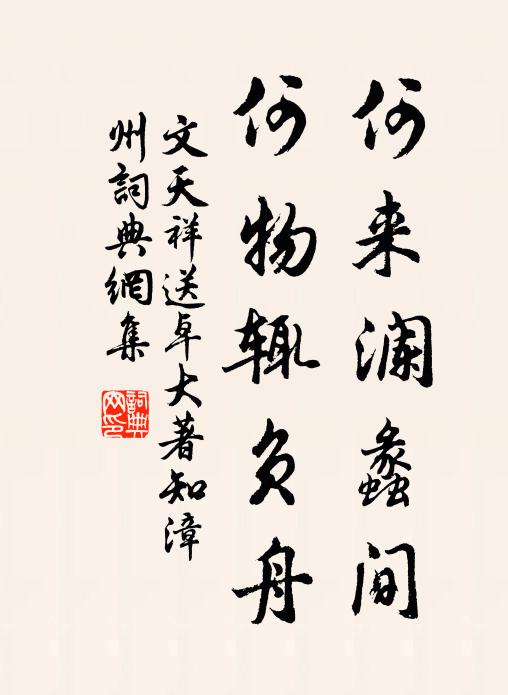 何来澜蠡间
何物辄负舟
文天祥送卓大著知漳
州詞典網集
詞典网印